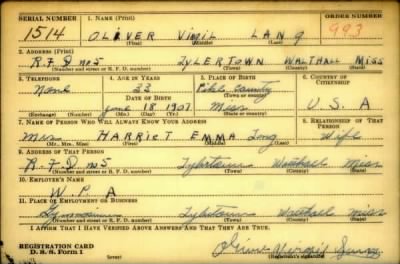 SERIAL NUMBER 1. NAME (Print) ORDER NUMBER
1514 OLIVER Virgil LANG 993
(First) (Middle) (Last)
2. ADDRESS (Print)
R.F.D no 5 TYLERTOWN WALTHALL MISS
(Number and street or R. F. D. number) (Town) (County) (State)
3. TELEPHONE 4. AGE IN YEARS 5. PLACE OF BIRTH 6. COUNTRY OF CITIZENSHIP
None 33 Pike County
DATE OF BIRTH
June 18 1907 Miss U. S. A
(Exchange) (Number) (Mo.) (Day) (Yr.) (State or country)
7. NAME OF PERSON WHO WILL ALWAYS KNOW YOUR ADDRESS 8. RELATIONSHIP OF THAT PERSON
HARRIET EMMA Wife
(Mr., Mrs., Miss) (First) (Middle) (Last)
9. ADDRESS OF THAT PERSON
R.F.D no 5 Tylertown Walthall Miss
(Number and street or R. F. D. number) (Town) (County) (State)
10. EMPLOYER'S NAME
W. P. A
11. PLACE OF EMPLOYMENT OR BUSINESS
Tylertown Walthall Miss
(Number and street or R. F. D. number) (Town) (County) (State)
I AFFIRM THAT I HAVE VERIFIED ABOVE ANSWERS AND THAT THEY ARE TRUE.
REGISTRATION CARD
D. S. S. Form 1 (Registrant's signature)
(over)